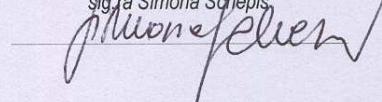 sig.ra Simona Schepis
Simona Schepis